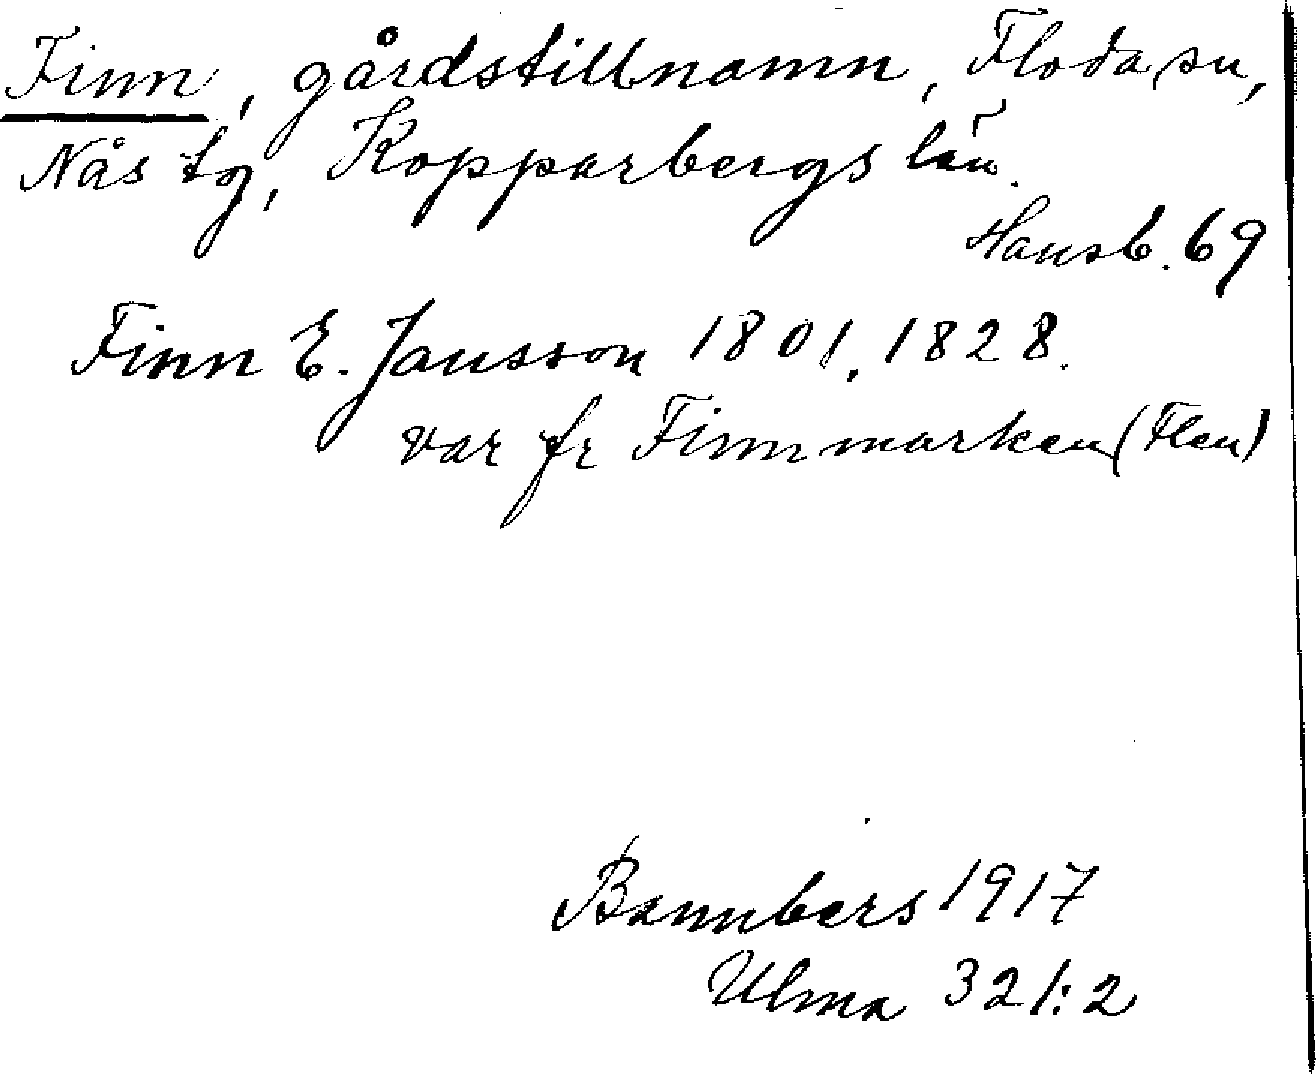 Finn, gårdstillnamn, Floda sn,
Nås tg, Kopparbergs län.
Hansb. 69
Finn E. Jansson 1801, 1828.
var fr Finnmarken (Flen)
Bannbers 1917
Ulma 321:2